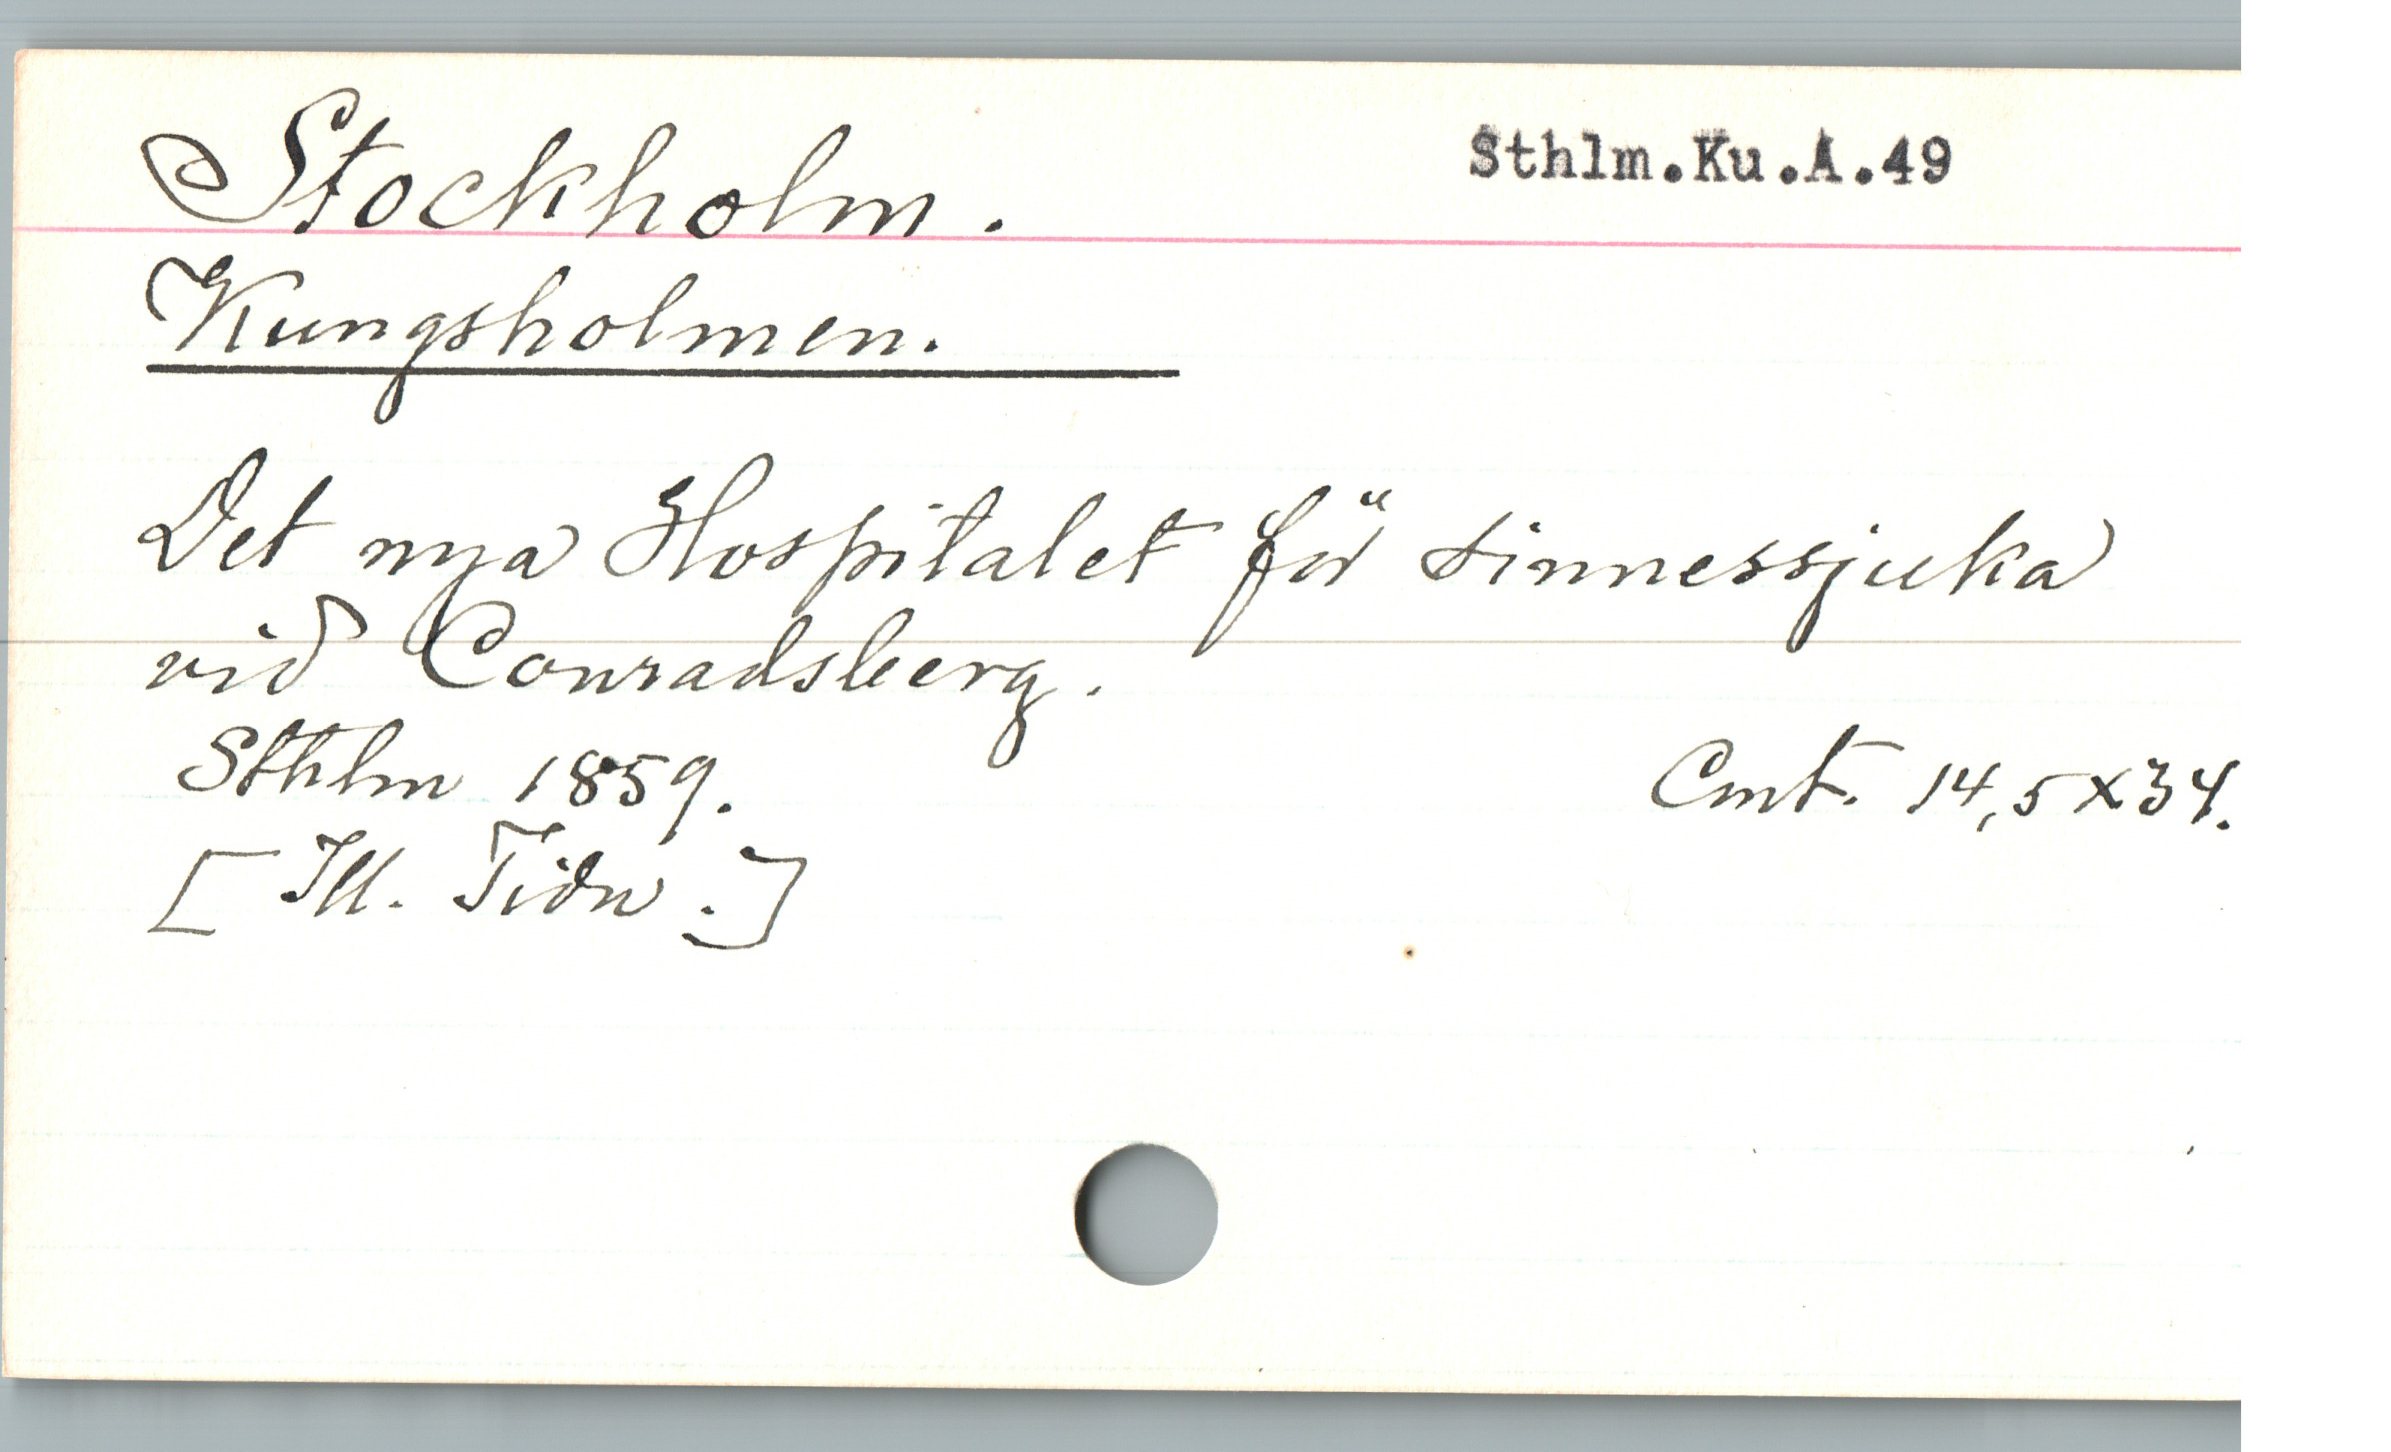 Stockholm. Sthlm.Ku.A.49
Kungsholmen.
Det nya Hospitalet för sinnessjuka
vid Conradsberg.
Sthlm 1859. Cmt. 14,5x34.
[Ill. Tidn.]